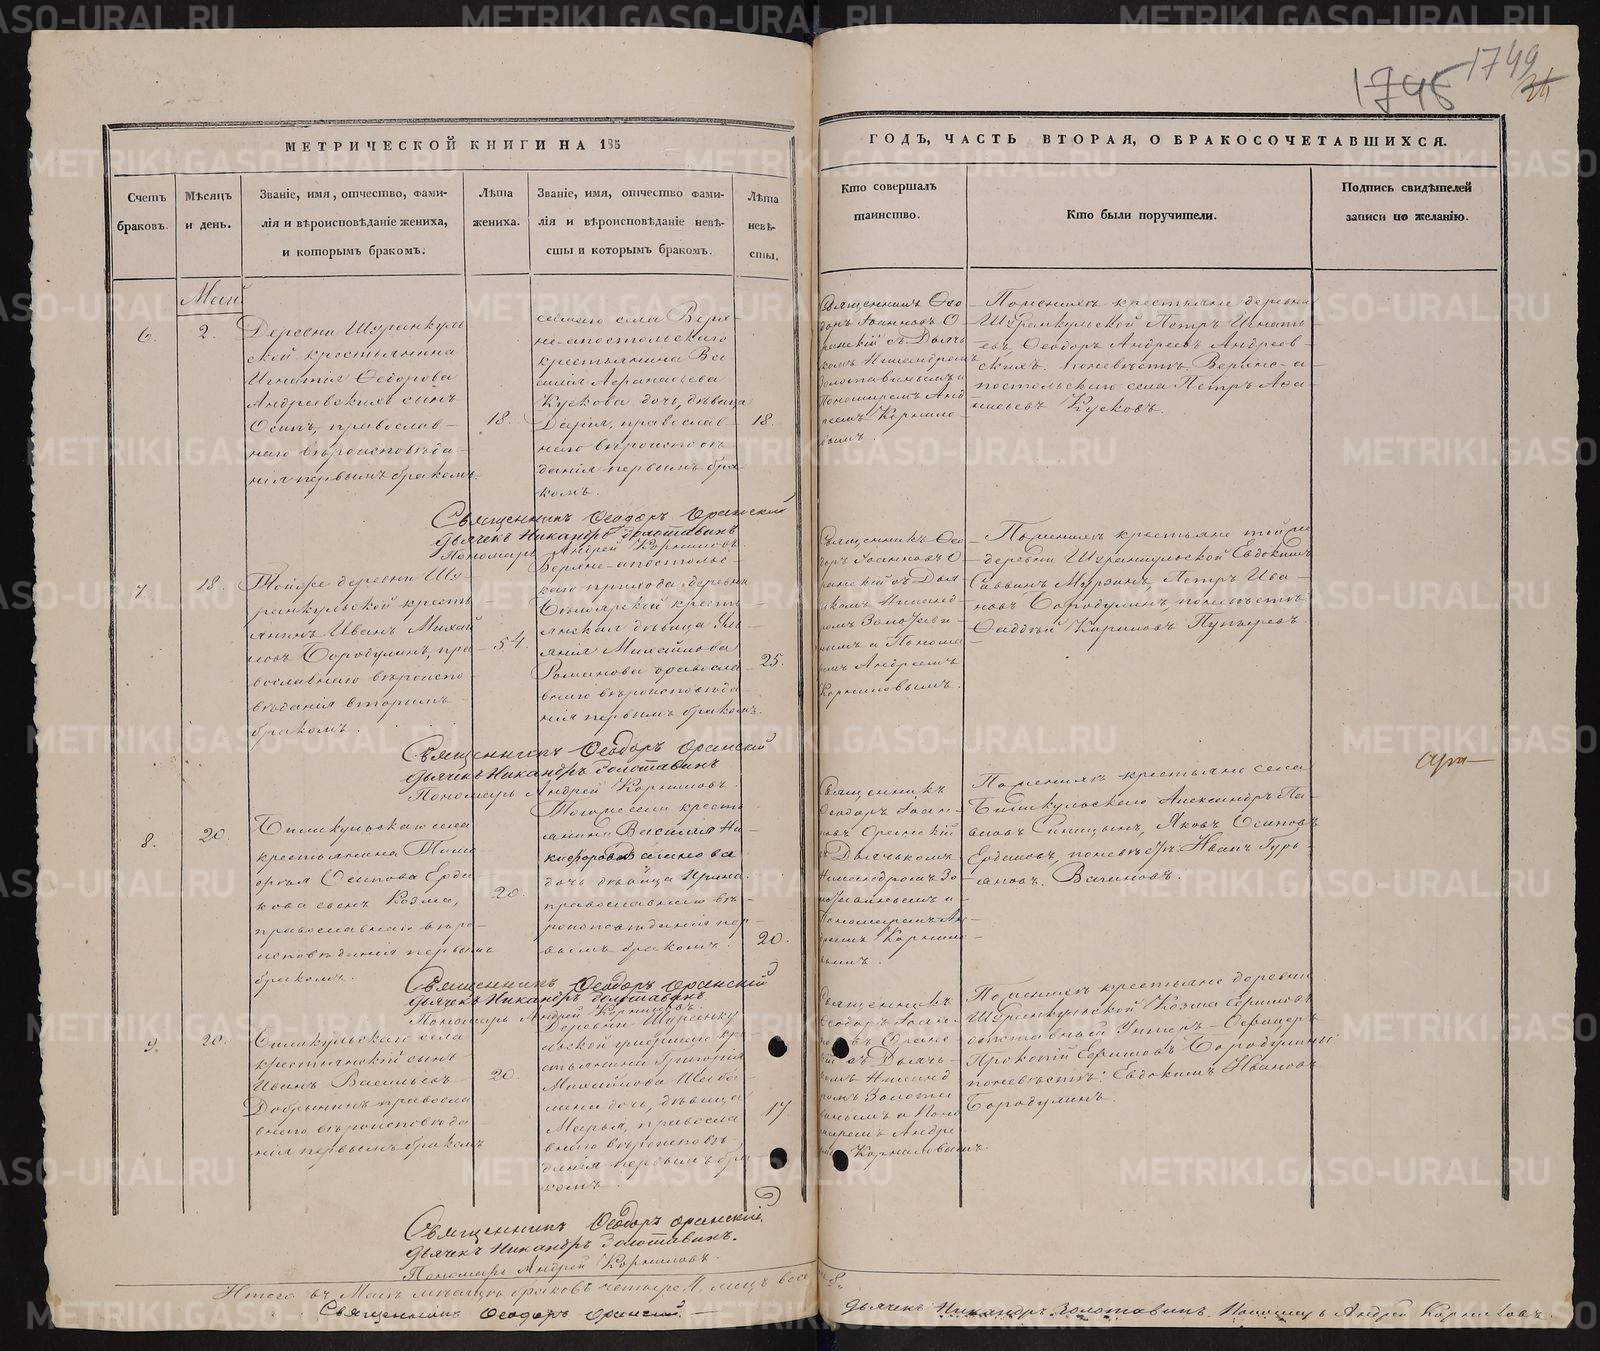 1746 1749
МЕТРИЧЕСКОЙ КНИГИ НА 185
ГОДЪ, ЧАСТЬ ВТОРАЯ, О БРАКОСОЧЕТАВШИХСЯ.
Счетъ браковъ.
Мѣсяцъ и день.
Званіе, имя, отчество, фами-
лія и вѣроисповѣданіе жениха,
и которымъ бракомъ.
Лѣта жениха.
Званіе, имя, отчество фами-
лія и вѣроисповѣданіе невѣ-
сты и которымъ бракомъ.
Лѣта невѣ-
сты.
Кто совершалъ
таинство.
Кто были поручители.
Подпись свидѣтелей
записи по желанію.
Май
6.
2.
Деревни Шуранкуль
ской крестьянина
Игнатія Ѳедорова
Андреевскихъ сынъ
Осипъ, православ-
наго вѣроисповѣда-
нія первымъ бракомъ.
18.
самаго села Верх-
не-апостольскаго
крестьянина Ва
силія Аѳанасьева
Кускова дочь, дѣвица
Дарья, православ-
наго вѣроисповѣ-
данія первымъ бра-
комъ.
18.
Священникъ Ѳео
доръ Іоанновъ О
ранскій съ Дьяч
комъ Никандромъ
Золотавинымъ и
Пономаремъ Анд
реемъ Корнило-
вымъ.
По женихѣ крестьяне деревни
Шуранкульской Петръ Игнать-
евъ, Ѳеодоръ Андреевъ Андреев-
скихъ. по невѣстѣ Верхно-а-
постольскаго села Петръ Аѳа-
насьевъ Кусковъ.
Священникъ Ѳеодоръ Оранскій
Дьячекъ Никандръ Золотавинъ
Пономарь Андрей Корниловъ.
7.
18.
Тойже деревни Шу-
ранкульской кресть
янинъ Иванъ Михай
ловъ Бородулинъ, пра
вославнаго вѣроиспо-
вѣданія вторымъ
бракомъ.
54.
Верхне-апостольс-
каго прихода деревни
Бѣлоярской кресть-
янская дѣвица Уль-
яния Михайлова
Романова правосла
внаго вѣроисповѣда
нія первымъ бракомъ.
25.
Священникъ Ѳео
доръ Іоанновъ О
ранскій съ Дья
чкомъ Никанд
ромъ Золотави-
нымъ и Понома
ремъ Андреемъ
Корниловымъ.
По женихѣ крестьяне той же
деревни Шуранкульской Евдокимъ
Саввинъ Мурзинъ, Петръ Ива-
новъ Бородулинъ, по невѣстѣ
Ѳаддѣй Кириловъ Пупыревъ
Священникъ Ѳеодоръ Оранскій
Дьячекъ Никандръ Золотавинъ
Пономарь Андрей Корниловъ.
8.
20.
крестьянина
Осипова Ерда
кова сынъ Козма,
православнаго вѣро-
исповѣданія первымъ
бракомъ.
20.
Тогоже села кресть
янина Василія Ни-
кифорова Вагинова
дочь дѣвица Ирина
православнаго вѣ-
роисповѣданія пер-
вымъ бракомъ.
20.
Священникъ
Ѳеодоръ Іоан-
новъ Оранскій
съ Дьячкомъ
Никандромъ Зо-
лотавинымъ и
Пономаремъ Ан-
дреемъ Корнило-
вымъ.
По женихѣ крестьяне села
Александръ Па-
вловъ Синицынъ, Яковъ Осиповъ
Ердаковъ, по невѣстѣ Иванъ Гурь-
яновъ Вагиновъ.
Священникъ Ѳеодоръ Оранскій
Дьячекъ Никандръ Золотавинъ
Пономарь Андрей Корниловъ.
9.
20.
села
крестьянскій сынъ
Иванъ Васильевъ
Добрынинъ правосла
внаго вѣроисповѣда
нія первымъ бракомъ
20.
Деревни Шуранку
льской умершаго кре
стьянина Григорія
Михайлова Шаба-
лина дочь, дѣвица
Марья, правосла
внаго вѣроисповѣ
данія первымъ бра
комъ.
17
Священникъ
Ѳеодоръ Іоан-
новъ Оранс
кій съ Дьяч-
комъ Никанд
ромъ Золота
винымъ и Поно
маремъ Андре
емъ Корниловымъ.
По женихѣ крестьяне деревни
Шуранкульской Козма Ефимовъ
отставной Унтеръ-Офицеръ
Прокопій Ефимовъ Бородулины
по невѣстѣ: Евдокимъ Ивановъ
Бородулинъ.
Священникъ Ѳеодоръ Оранскій.
Дьячекъ Никандръ Золотавинъ.
Пономарь Андрей Корниловъ.
Итого въ Маѣ мѣсяцѣ браковъ четыре 4, лицъ восемь 8.
Священникъ Ѳеодоръ Оранскій. — Дьячекъ Никандръ Золотавинъ. Пономарь Андрей Корниловъ.
METRIKI.GASO-URAL.RU